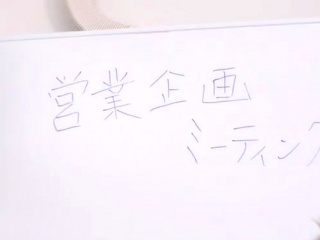 営業企画
ミーティング